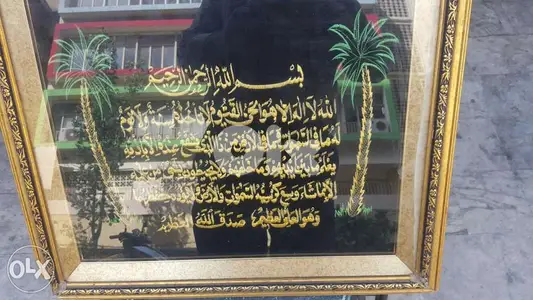 بسم الله الرحمن الرحيم
الله لا اله الا هو الحي القيوم لا تاخذه سنة ولا نوم
له ما في السموات وما في الارض من ذا الذي يشفع عنده الا باذنه
يعلم ما بين ايديهم وما خلفهم ولا يحيطون بشيء من علمه
الا بما شاء وسع كرسيه السموات والارض ولا يؤده حفظهما
وهو العلي العظيم صدق الله العظيم
OLX